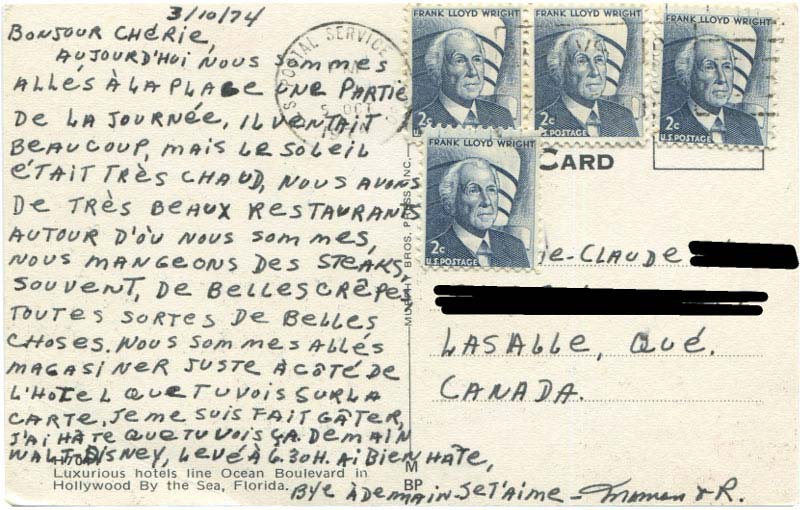 3/10/74
BONJOUR CHÉRIE,
AUJOURD'HUI NOUS SOMMES
ALLÉS À LA PLAGE UNE PARTIE
DE LA JOURNÉE, IL VENTAIT
BEAUCOUP, MAIS LE SOLEIL
ÉTAIT TRÈS CHAUD, NOUS AVONS
DE TRÈS BEAUX RESTAURANTS
AUTOUR D'OÙ NOUS SOMMES,
NOUS MANGEONS DES STEAKS,
SOUVENT, DE BELLES CRÊPE
TOUTES SORTES DE BELLES
CHOSES. NOUS SOMMES ALLÉS
MAGASINER JUSTE À CÔTÉ DE
L'HOTEL QUE TU VOIS SUR LA
CARTE, JE ME SUIS FAIT GÂTER,
J'AI HÂTE QUE TU VOIS ÇA. DEMAIN
WALT-DISNEY, LEVÉ À 6.30H. AI BIEN HÂTE,
BYE À DEMAIN JE T'AIME - Maman & R.
Luxurious hotels line Ocean Boulevard in
Hollywood By the Sea, Florida.
POSTAL SERVICE
OCT
FRANK LLOYD WRIGHT
2c
U.S. POSTAGE
FRANK LLOYD WRIGHT
2c
U.S. POSTAGE
FRANK LLOYD WRIGHT
2c
U.S. POSTAGE
FRANK LLOYD WRIGHT
2c
U.S. POSTAGE
CARD
BROS. PRESS, INC.
M
BP
IE-CLAUDE
LASALLE, QUÉ.
CANADA.